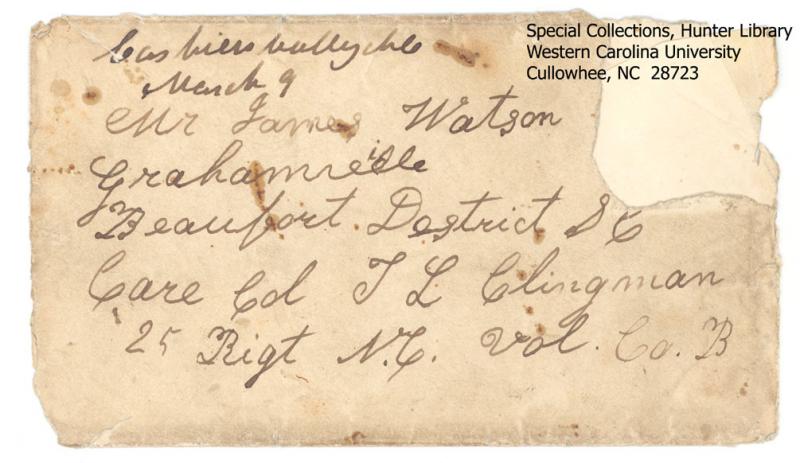 Cashiers Vally NC
March 9
Mr James Watson
Grahamville
Beaufort Destrict S C
Care Col T L Clingman
25 Rigt N.C. Vol. Co. B
Special Collections, Hunter Library
Western Carolina University
Cullowhee, NC 28723